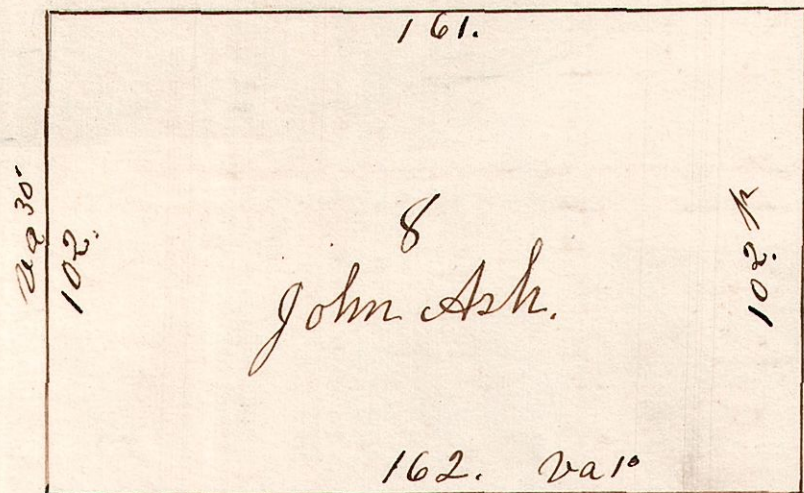 161.
va 30'
102.
8
John Ash.
102. p
162. va 1°